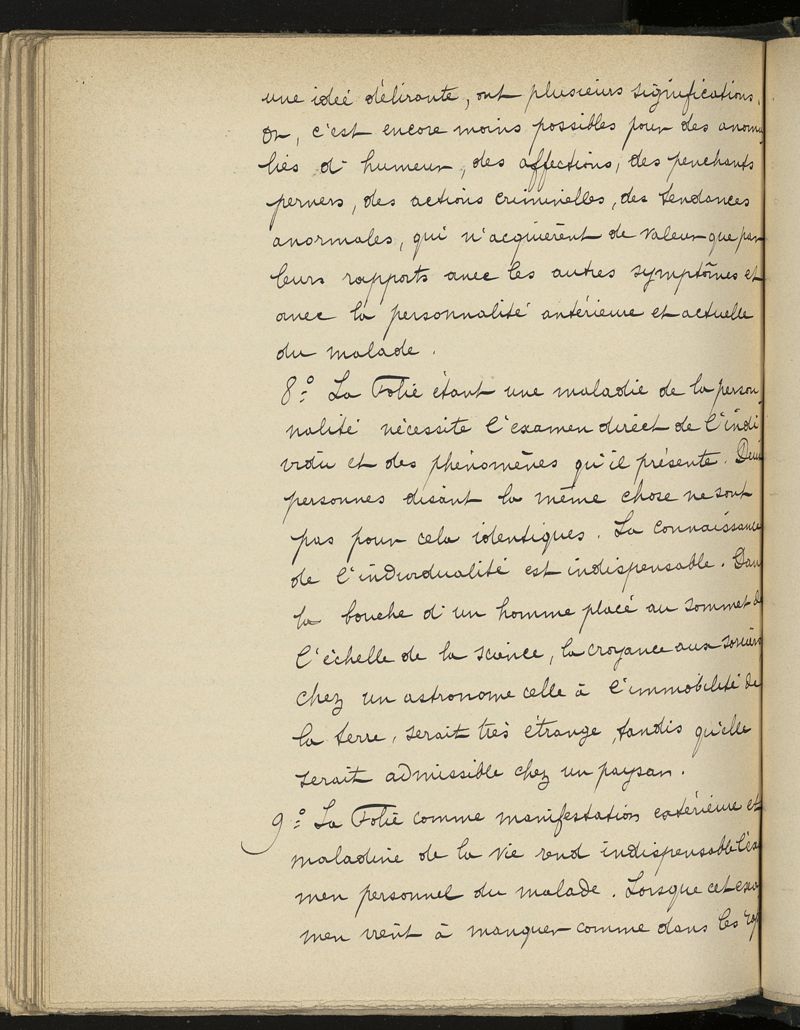 une idée délirante, ont plusieurs significations.
Or, c'est encore moins possibles pour des anoma
lies d'humeur, des affections, des penchants
pervers, des actions criminelles, des tendances
anormales, qui n'acquièrent de valeur que par
leurs rapports avec les autres symptômes et
avec la personnalité antérieure et actuelle
du malade.
8.º La Folie étant une maladie de la person
nalité nécessite l'examen direct de l'indi
vidu et des phénomènes qu'il présente. Deux
personnes disant la même chose ne sont
pas pour cela identiques. La connaissance
de l'individualité est indispensable. Dans
la bouche d'un homme placé au sommet de
l'échelle de la science, la croyance aux sorciers
chez un astronome celle à l'immobilité de
la terre, serait très étrange, tandis qu'elle
serait admissible chez un paysan.
9.º La Folie comme manifestation extérieure et
maladive de la vie rend indispensable l'exa
men personnel du malade. Lorsque cet exa
men vient à manquer comme dans les